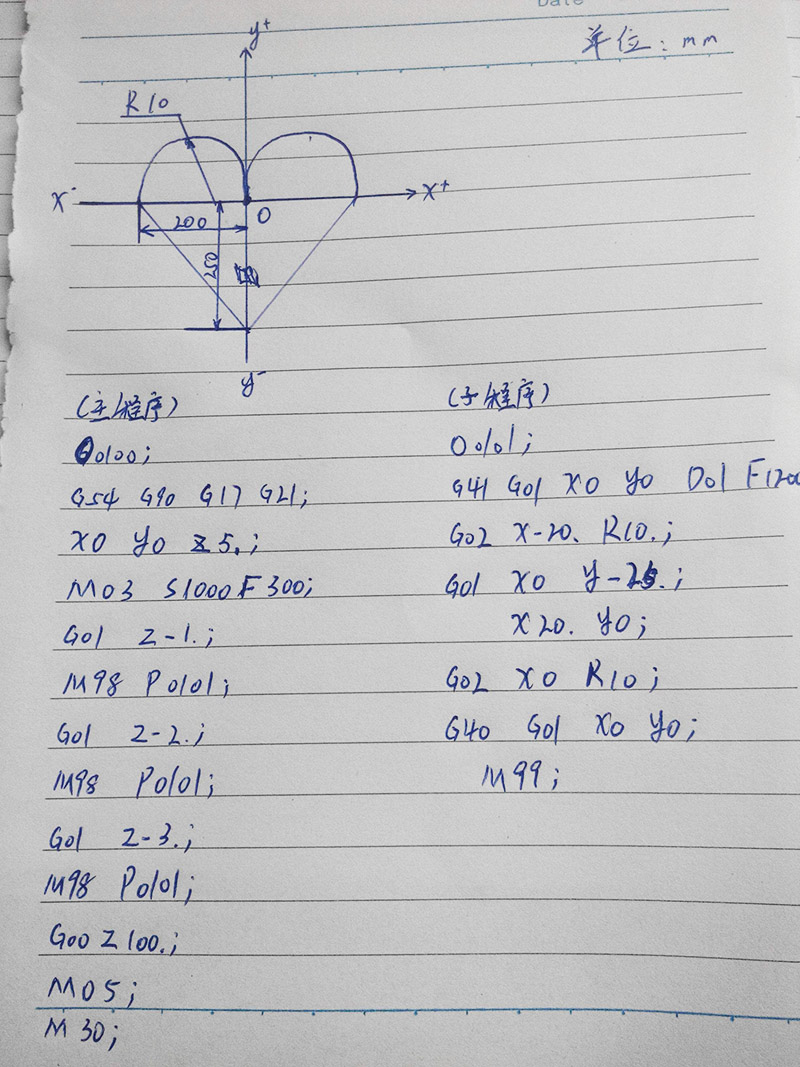 Date
单位：mm
y+
R10
x-
x+
O
200
250
y-
(主程序)
O0100;
G54 G90 G17 G21;
X0 Y0 Z5.;
M03 S1000 F300;
G01 Z-1.;
M98 P0101;
G01 Z-2.;
M98 P0101;
G01 Z-3.;
M98 P0101;
G00 Z100.;
M05;
M30;
(子程序)
O0101;
G41 G01 X0 Y0 D01 F1200
G02 X-20. R10.;
G01 X0 Y-25.;
X20. Y0;
G02 X0 R10;
G40 G01 X0 Y0;
M99;